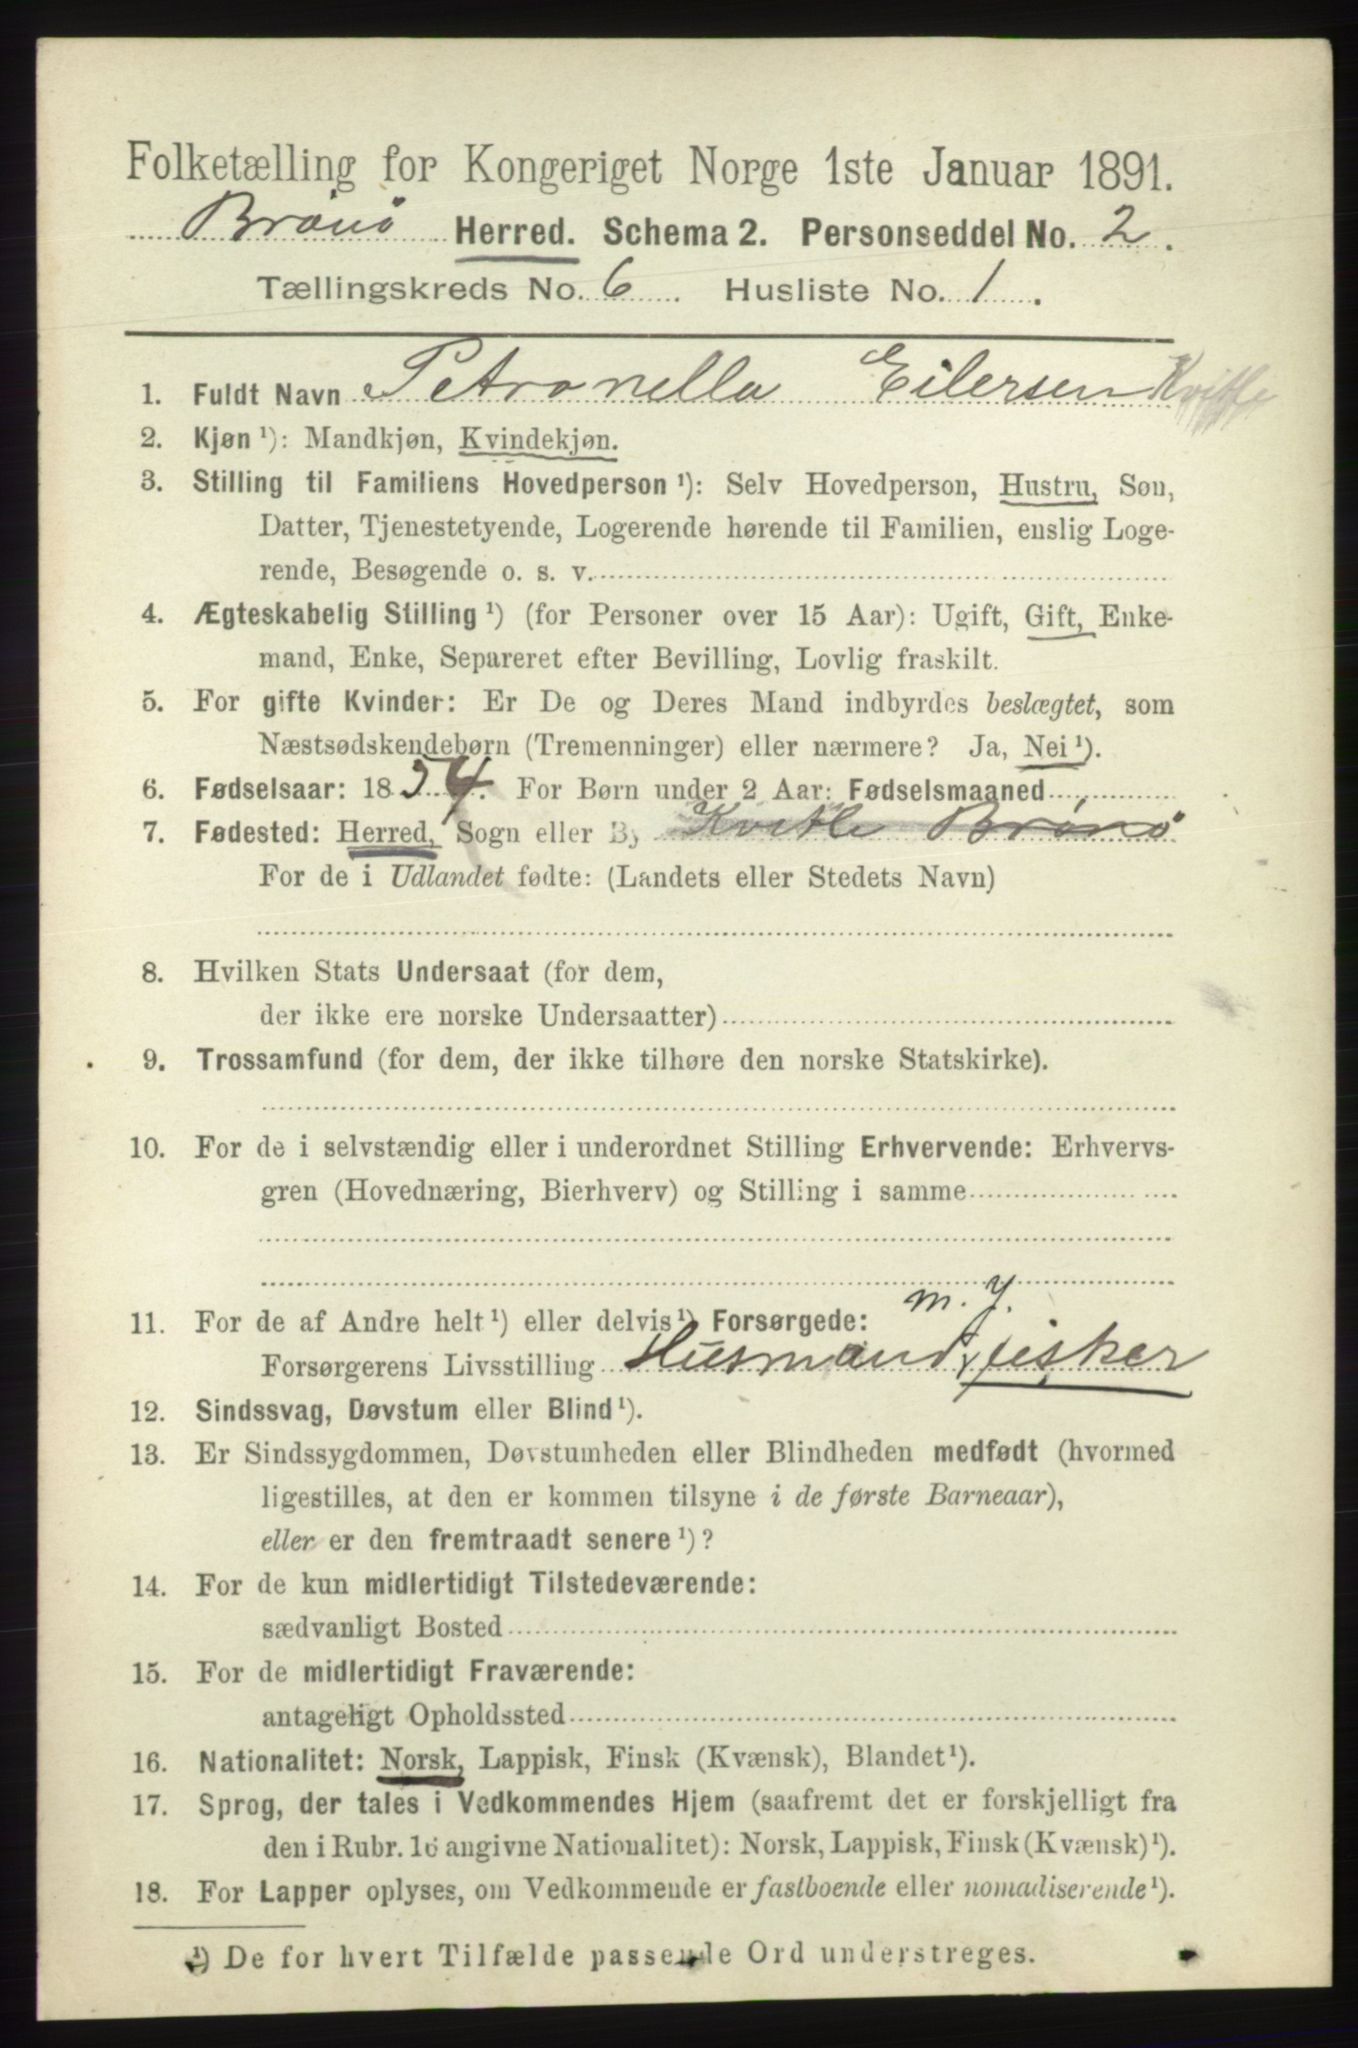 Folketælling for Kongeriget Norge 1ste Januar 1891.
Brönö Herred. Schema 2. Personseddel No. 2.
Tællingskreds No. 6 Husliste No. 1.
1. Fuldt Navn Petronella Eilersen
2. Kjøn ¹): Mandkjøn, Kvindekjøn.
3. Stilling til Familiens Hovedperson ¹): Selv Hovedperson, Hustru, Søn,
Datter, Tjenestetyende, Logerende hørende til Familien, enslig Loge-
rende, Besøgende o. s. v.
4. Ægteskabelig Stilling ¹) (for Personer over 15 Aar): Ugift, Gift, Enke-
mand, Enke, Separeret efter Bevilling, Lovlig fraskilt.
5. For gifte Kvinder: Er De og Deres Mand indbyrdes beslægtet, som
Næstsødskendebørn (Tremenninger) eller nærmere? Ja, Nei ¹).
6. Fødselsaar: 1854. For Børn under 2 Aar: Fødselsmaaned
7. Fødested: Herred, Sogn eller By Brönö
For de i Udlandet fødte: (Landets eller Stedets Navn)
8. Hvilken Stats Undersaat (for dem,
der ikke ere norske Undersaatter)
9. Trossamfund (for dem, der ikke tilhøre den norske Statskirke).
10. For de i selvstændig eller i underordnet Stilling Erhvervende: Erhvervs-
gren (Hovednæring, Bierhverv) og Stilling i samme
m. J.
11. For de af Andre helt ¹) eller delvis ¹) Forsørgede:
Forsørgerens Livsstilling Husmand, fisker
12. Sindssvag, Døvstum eller Blind ¹).
13. Er Sindssygdommen, Døvstumheden eller Blindheden medfødt (hvormed
ligestilles, at den er kommen tilsyne i de første Barneaar),
eller er den fremtraadt senere ¹)?
14. For de kun midlertidigt Tilstedeværende:
sædvanligt Bosted
15. For de midlertidigt Fraværende:
antageligt Opholdssted
16. Nationalitet: Norsk, Lappisk, Finsk (Kvænsk), Blandet ¹).
17. Sprog, der tales i Vedkommendes Hjem (saafremt det er forskjelligt fra
den i Rubr. 16 angivne Nationalitet): Norsk, Lappisk, Finsk (Kvænsk) ¹).
18. For Lapper oplyses, om Vedkommende er fastboende eller nomadiserende ¹).
¹) De for hvert Tilfælde passende Ord understreges.